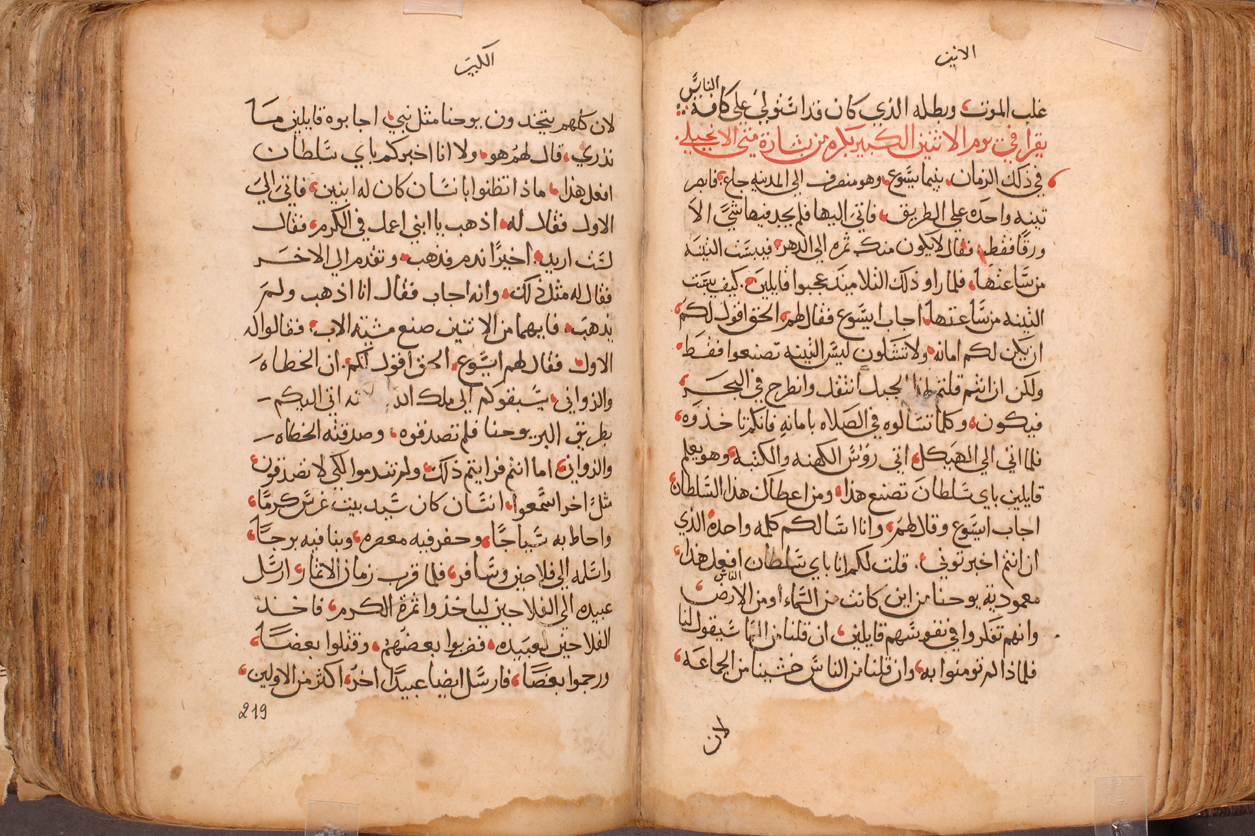 الاثنين
الناس
غلب الموت، وبطله الذي كان قد استولي علي كافة
يقرا في يوم الاثنين الكبير بكره من بشارة متي الانجيلي
في ذلك الزمان، بينما يسوع وهو منصرف الي المدينه جاع، فابصر
تينه واحده علي الطريق، فاتي اليها فلم يجد فيها شيًا الا
ورقًا فقط، فقال لايكون منك ثمره الي الدهر، فيبست التينه
من ساعتها، فلما راو ذلك التلاميذ عجبوا قايلين، كيف يبست
التينه من ساعتها، اجاب ايسوع فقال لهم، الحق اقول لكم
ان يكن لكم امانه ولا تشكون ليس التينه تصنعوا فقط
ولكن ان انتم قلتم لهذا الجبل انتقل وانطرح في البحر
فيكون، وكلما تسالوه في الصلاه بامانه فانكم تاخذوه
فلما اتي الي الهيكل، اتي روس الكهنه والكتبه وهو يعلم
قايلين باي سلطان تصنع هذا، ومن اعطاك هذا السلطان
اجاب ايسوع وقال لهم، وانا اسالكم كلمه واحده الذي
ان انتم اخبرتوني، قلت لكم انا باي سلطان افعل هذا
معمودية يوحنا من اين كانت من السماء أومن الارض
الناس
وانهم تفكروا في نفوسهم قايلين، ان قلنا من السما سيقول لنا
فلماذا لم تومنوا به، وان قلنا من الناس خشينا من الجماعه
لان
الكبير
لان كلهم يتخدون يوحنا مثل نبي، اجابوه قايلين مـا
ندري، قال لهم هو، ولا انا اخبركم باي سلطان
افعل هذا، ماذا تظنوا انسان كان له ابنين، فاتي الي
الاول فقال له، اذهب يا ابني اعمل في الكرم، فقال
لست اريد، اخيرًا ندم فذهب، وتقدم الي الاخر
فقال له مثل ذلك، وانه اجاب فقال انا اذهب ولم
يذهب، فايهما من الاثنين صنع مشية الاب، فقالوا له
الاول، فقال لهم ايسوع، الحق اقول لكم، ان الخطاه
والزواني، يسبقوكم الي ملك الله اتي اليكم
بطريق البر يوحنا فلم تصدقوه، وصدقته الخطاه
والزواني، اما انتم فرايتم ذلك، ولم تندموا لكي لا تصدقون
مثل اخر اسمعوا، انسان كان سيد بيت غرس كرمًا
واحاط به سياجًا، وحفر فيه معصره، وبنا فيه برجًا
واسلمه الي فلاحين وسافر، فلما قرب زمان الاثمار ارسل
عبيده الي الفلاحين لياخذوا ثمرة الكرم، فاخذ
الفلاحين لعبيده، فضربوا بعضهم، وقتلوا بعضًا
ورجموا بعضًا، فارسل ايضا عبيدًا اخر، اكثر من الاولين
219